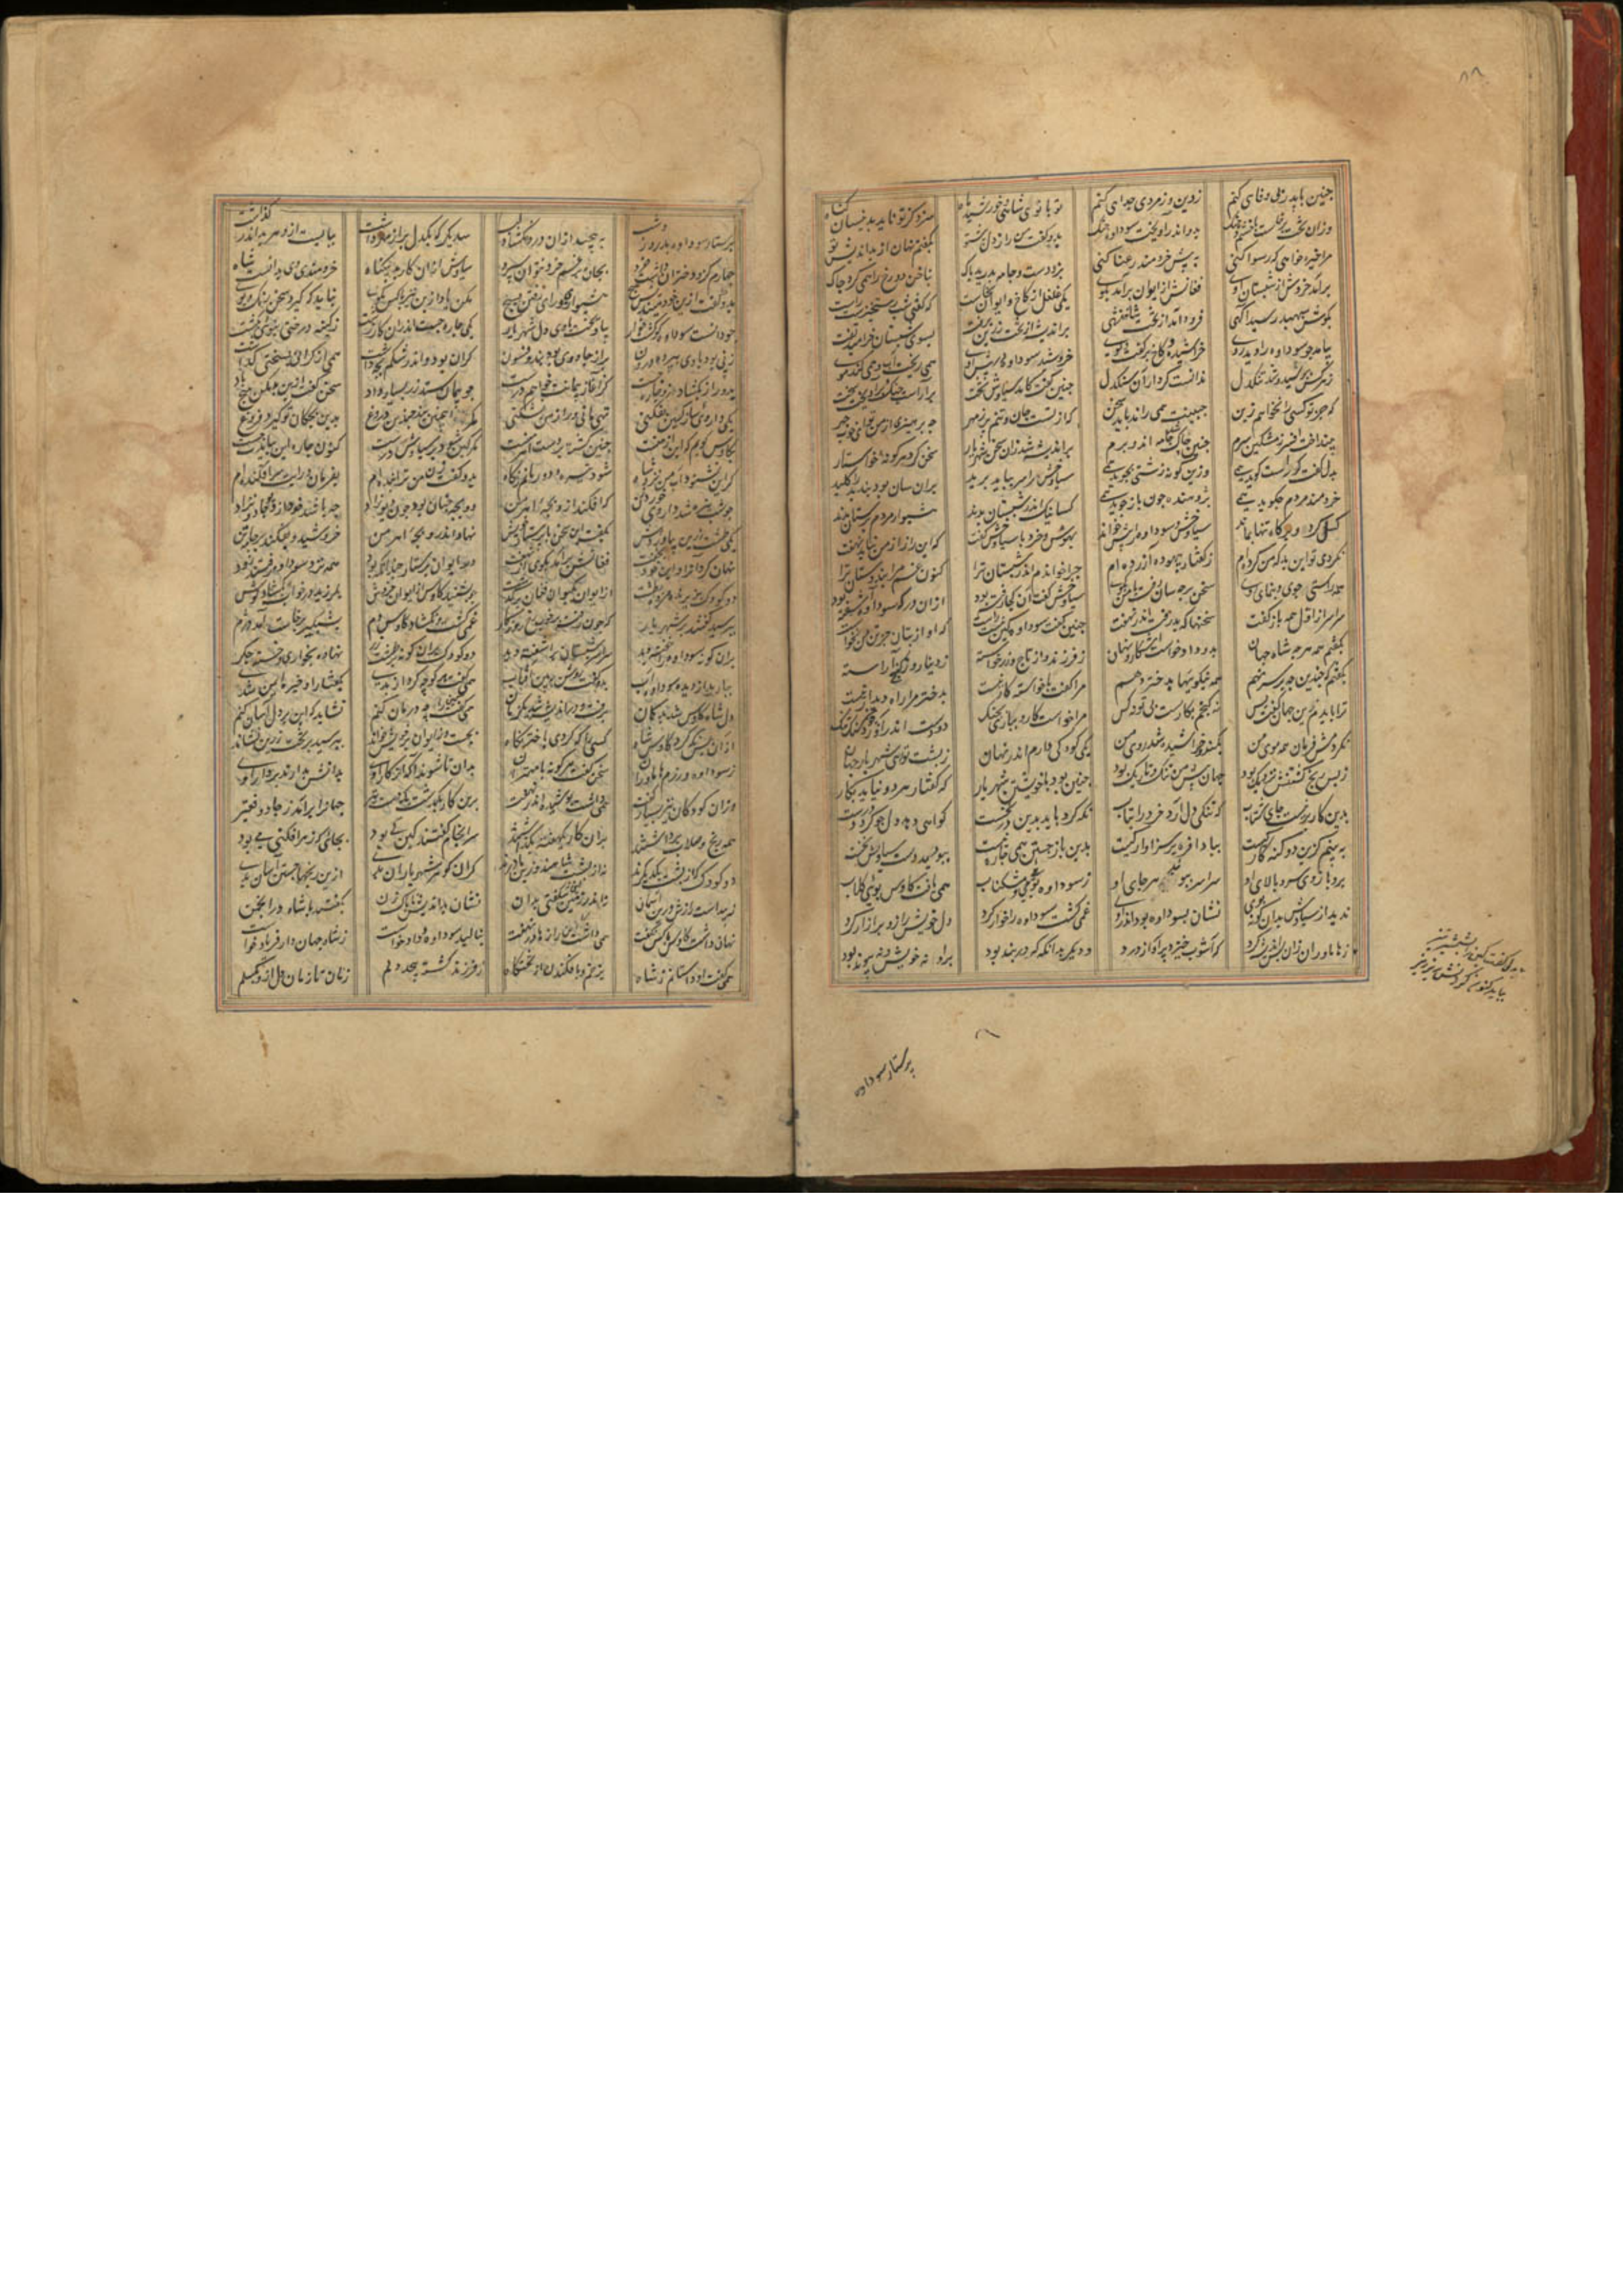 چنین با پدر بی وفایی کنم ز دین و ز مردی جدایی کنم تو بانوی شاهی و خورشید گاه سزد کز تو ناید بدینسان گناه
وزان تخت برخاست با خشم و جنگ بدو اندر آویخت سوداوه چنگ بدو گفت من راز دل پیش تو بگفتم نهان از بداندیش تو
مرا خیره خواهی که رسوا کنی به پیش خردمند رعنا کنی بزد دست و جامه بدرید پاک بناخن دو رخ را همی کرد چاک
برآمد خروش از شبستان اوی فغانش از ایوان برآمد بکوی یکی غلغل از کاخ و ایوان بخاست که گفتی شب رستخیزست راست
بگوش سپهبد رسید آگهی فرود آمد از تخت شاهنشهی بر اندیشه از تخت زرین برفت بسوی شبستان خرامید تفت
بیامد چو سوداوه را دید روی خراشیده و کاخ پر گفت و گوی خروشید سوداوه در پیش اوی همی ریخت آب و همی کند موی
ز هر کس بپرسید و شد تنگدل ندانست کردار آن سنگدل چنین گفت کامد سیاوش بتخت برآراست چنگ و برآویخت سخت
که جز تو کسی را نخواهم ز بن همی راند باید سخن که از تست جان و تنم پر ز مهر چه پرهیزی از من تو ای خوب چهر
بینداخت افسر ز مشکین سرم چنین چاک شد جامه اندر برم پر اندیشه شد زان سخن شهریار سخن کرد هر گونه خواستار
بدل گفت کر راست گوید همی وزین گونه زشتی بجوید همی سیاوخش را سر بباید برید بدان سان بود بند بد را کلید
خردمند مردم چه گوید همی پژوهنده چون باز جوید همی کسانیک اندر شبستان بدند هشیوار مردم پرستان بدند
کسی کرد و بر گاه تنها بماند سیاوخش و سوداوه را پیش خواند بهوش و خرد با سیاوخش گفت که این راز از من نباید نهفت
نکردی تو این بد که من کرده ام ز گفتار بیهوده آزرده ام چرا خواندم اندر شبستان ترا کنون غم مرا بند و دستان ترا
همه راستی جوی و بنمای روی سخن بر چه سان رفت با من بگوی سیاوخش گفت آن کجا رفته بود ازان در که سوداوه آشفته بود
سراسر ز اول همه باز گفت سخنها که بد رفته اندر نهفت چنین گفت سوداوه کین نیست راست که او از بتان جز تن من نخواست
بگفتم همه هرچه شاه جهان بدو داد خواست آشکار و نهان ز فرزند و از تاج وز خواسته ز دینار وز گنج آراسته
بگفتم که چندین برین بر نهم همه نیکویها بدختر دهم مرا گفت با خواسته کار نیست بدختر مرا راه دیدار نیست
ترا بایدم زین جهان گفت بس نه گنجم بکارست بی تو نه کس مرا خواست کارد بباری بچنگ دو دست اندر آورد چون سنگ تنگ
نکردمش فرمان همه موی من بکند و خراشیده شد روی من یکی کودکی دارم اندر نهان ز پشت تو ای شهریار جهان
ز بس رنج کشتنش نزدیک بود جهان پیش من تنگ و تاریک بود چنین بود با خویشتن شهریار که گفتار هر دو نیاید بکار
بدین کار بر نیست جای شتاب که تنگی دل آرد خرد را بتاب نگه کرد باید بدین در نخست گواهی دهد دل چو گردد درست
به بینم کزین دو گنه کار کیست ببادافره بر سزاوار کیست بدین باز جستن همی چاره جست ببویید دست سیاوش نخست
بر و بازوی و سرو بالای او سراسر ببویید هر جای او ز سوداوه بوی می و مشکناب همی یافت کاوس بوی گلاب
ندید از سیاوش بدان گونه بوی نشان بسودن نبود اندر اوی غمی گشت سوداوه را خوار کرد دل خویش را زو پر آزار کرد
ز هاماوران زان پس اندیشه کرد که آشوب خیزد پر آواز و درد و دیگر بدانگه که در بند بود بر او نه خویش و نه پیوند بود
بدل گفت کین را بشمشیر تیز
بباید کنون کردنش ریز ریز
پرستار سوداوه
پرستار سوداوه بد روز و شب به پیچید ازان درد و نگشاد لب سدیگر که یکدل پر از مهر داشت ببایست ازو هر بد اندر گذاشت
چهارم کزو دختران داشت خرد بجان خرد نتوان سپرد سیاوش ازان کار بد بیگناه خردمندی وی بدانست شاه
بدو گفت ازین خود میندیش هیچ هشیواری و رای رفتن بسیچ مکن یاد ازین نیز با کس مگوی نباید که گیرد سخن رنگ و بوی
چو دانست سوداوه کو گشت خوار دل شهریار یکی چاره جست اندران کار زشت ز کینه درختی بنوی بکشت
زنی بود با وی بپرده درون پر از جادوی بود و بند و فسون گران بود و اندر شکم بچه داشت همی از گرانی بسختی گذاشت
بدو راز بگشاد و زو چاره جست کز آغاز پیمانت خواهم درست چو پیمان ستد زر بسیار داد سخن گفت ازین در مکن هیچ یاد
یکی داروی ساز کین بفکنی تهی مانی و راز من نشکنی مگر این چنین بند چندین دروغ بدین بچگان تو گیرد فروغ
بکاوس گویم که این از منست چنین کشته بر دست اهرمنست مگر کین شود بر سیاوش درست کنون چاره این ببایدت جست
گر این نشنوی آب من نزد شاه شود تیره و دور مانم ز گاه بدو گفت زن من ترا بنده ام بفرمان و رایت سرافکنده ام
چو شب تیره شد داروی خورد زن که افکند ازو بچه اهرمن دو بچه چنان بود چون دیوزاد چه باشند خود از جادو نژاد
یکی طشت زرین بیاورد پیش بگفت این سخن با پرستار خویش نهاد اندرو بچه اهرمن خروشید و بفکند بر جامه تن
نهان کرد زن را و این خود بخفت فغانش برآمد بکوی از نهفت در ایوان پرستار چندانکه بود همه نزد سوداوه رفتند زود
دو کودک بدیدند مرده بطشت از ایوان بکیوان فغان برگذشت چو بشنید کاوس از ایوان خروش بلرزید در خواب و بگشاد گوش
بپرسید گفتند بر شهریار که چون رفت بر خوب رخ روزگار غمی گشت دم شبگیر برخاست آمد دژم
بران گونه سوداوه خفته دید سراسر شبستان برآشفته دید دو کودک بران گونه بر طشت زر نهاده بخواری و خسته جگر
ببارید از دیده سوداوه آب بدو گفت روشن ببین آفتاب همی گفت کو چه کرد از بدی بگفتار او خیره ایمن شدی
دل شاه کاوس شد بدگمان برفت و در اندیشه شد یک زمان همی گفت چه درمان کنم نشاید که این بر دل آسان کنم
ازان پس نگه کرد کاوس شاه کسی را که کردی باختر نگاه بجست و ز ایوان بر خویش خواند بپرسید بر تخت زرین نشاند
ز سوداوه و رزم هاماوران سخن گفت هر گونه با مهتران بدان تا شوند آگه از کار اوی بدانش بدانند کردار اوی
وزان کودکان نیز بسیار گفت همی داشت پوشیده اندر نهفت برین کار بگذشت یک هفته نیز ز جادو
همه زیج و صلاب برداشتند بران کار یک هفته بگذاشتند سرانجام گفتند کین کی بود بجامی که زهر افکنی می بود
دو کودک که از پشت دیگرند نه از پشت شاهند وزین مادرند گر از گوهر شهریاران بدی ازین زیجها جستن آسان بدی
نه پیداست رازش درین آسمان نه اندر زمین این شگفتی بدان نشان بداندیش ناپاک زن بگفتند با شاه در انجمن
نهان داشت کاوس و با کس نگفت همی داشت این راز را در نهفت بنالید سوداوه و داد خواست ز شاه جهاندار فریاد خواست
همی گفت همداستانم ز شاه بزخم و بافکندن از تختگاه ز فرزند کشته بپیچد دلم زمان تا زمان دل ازو بگسلم